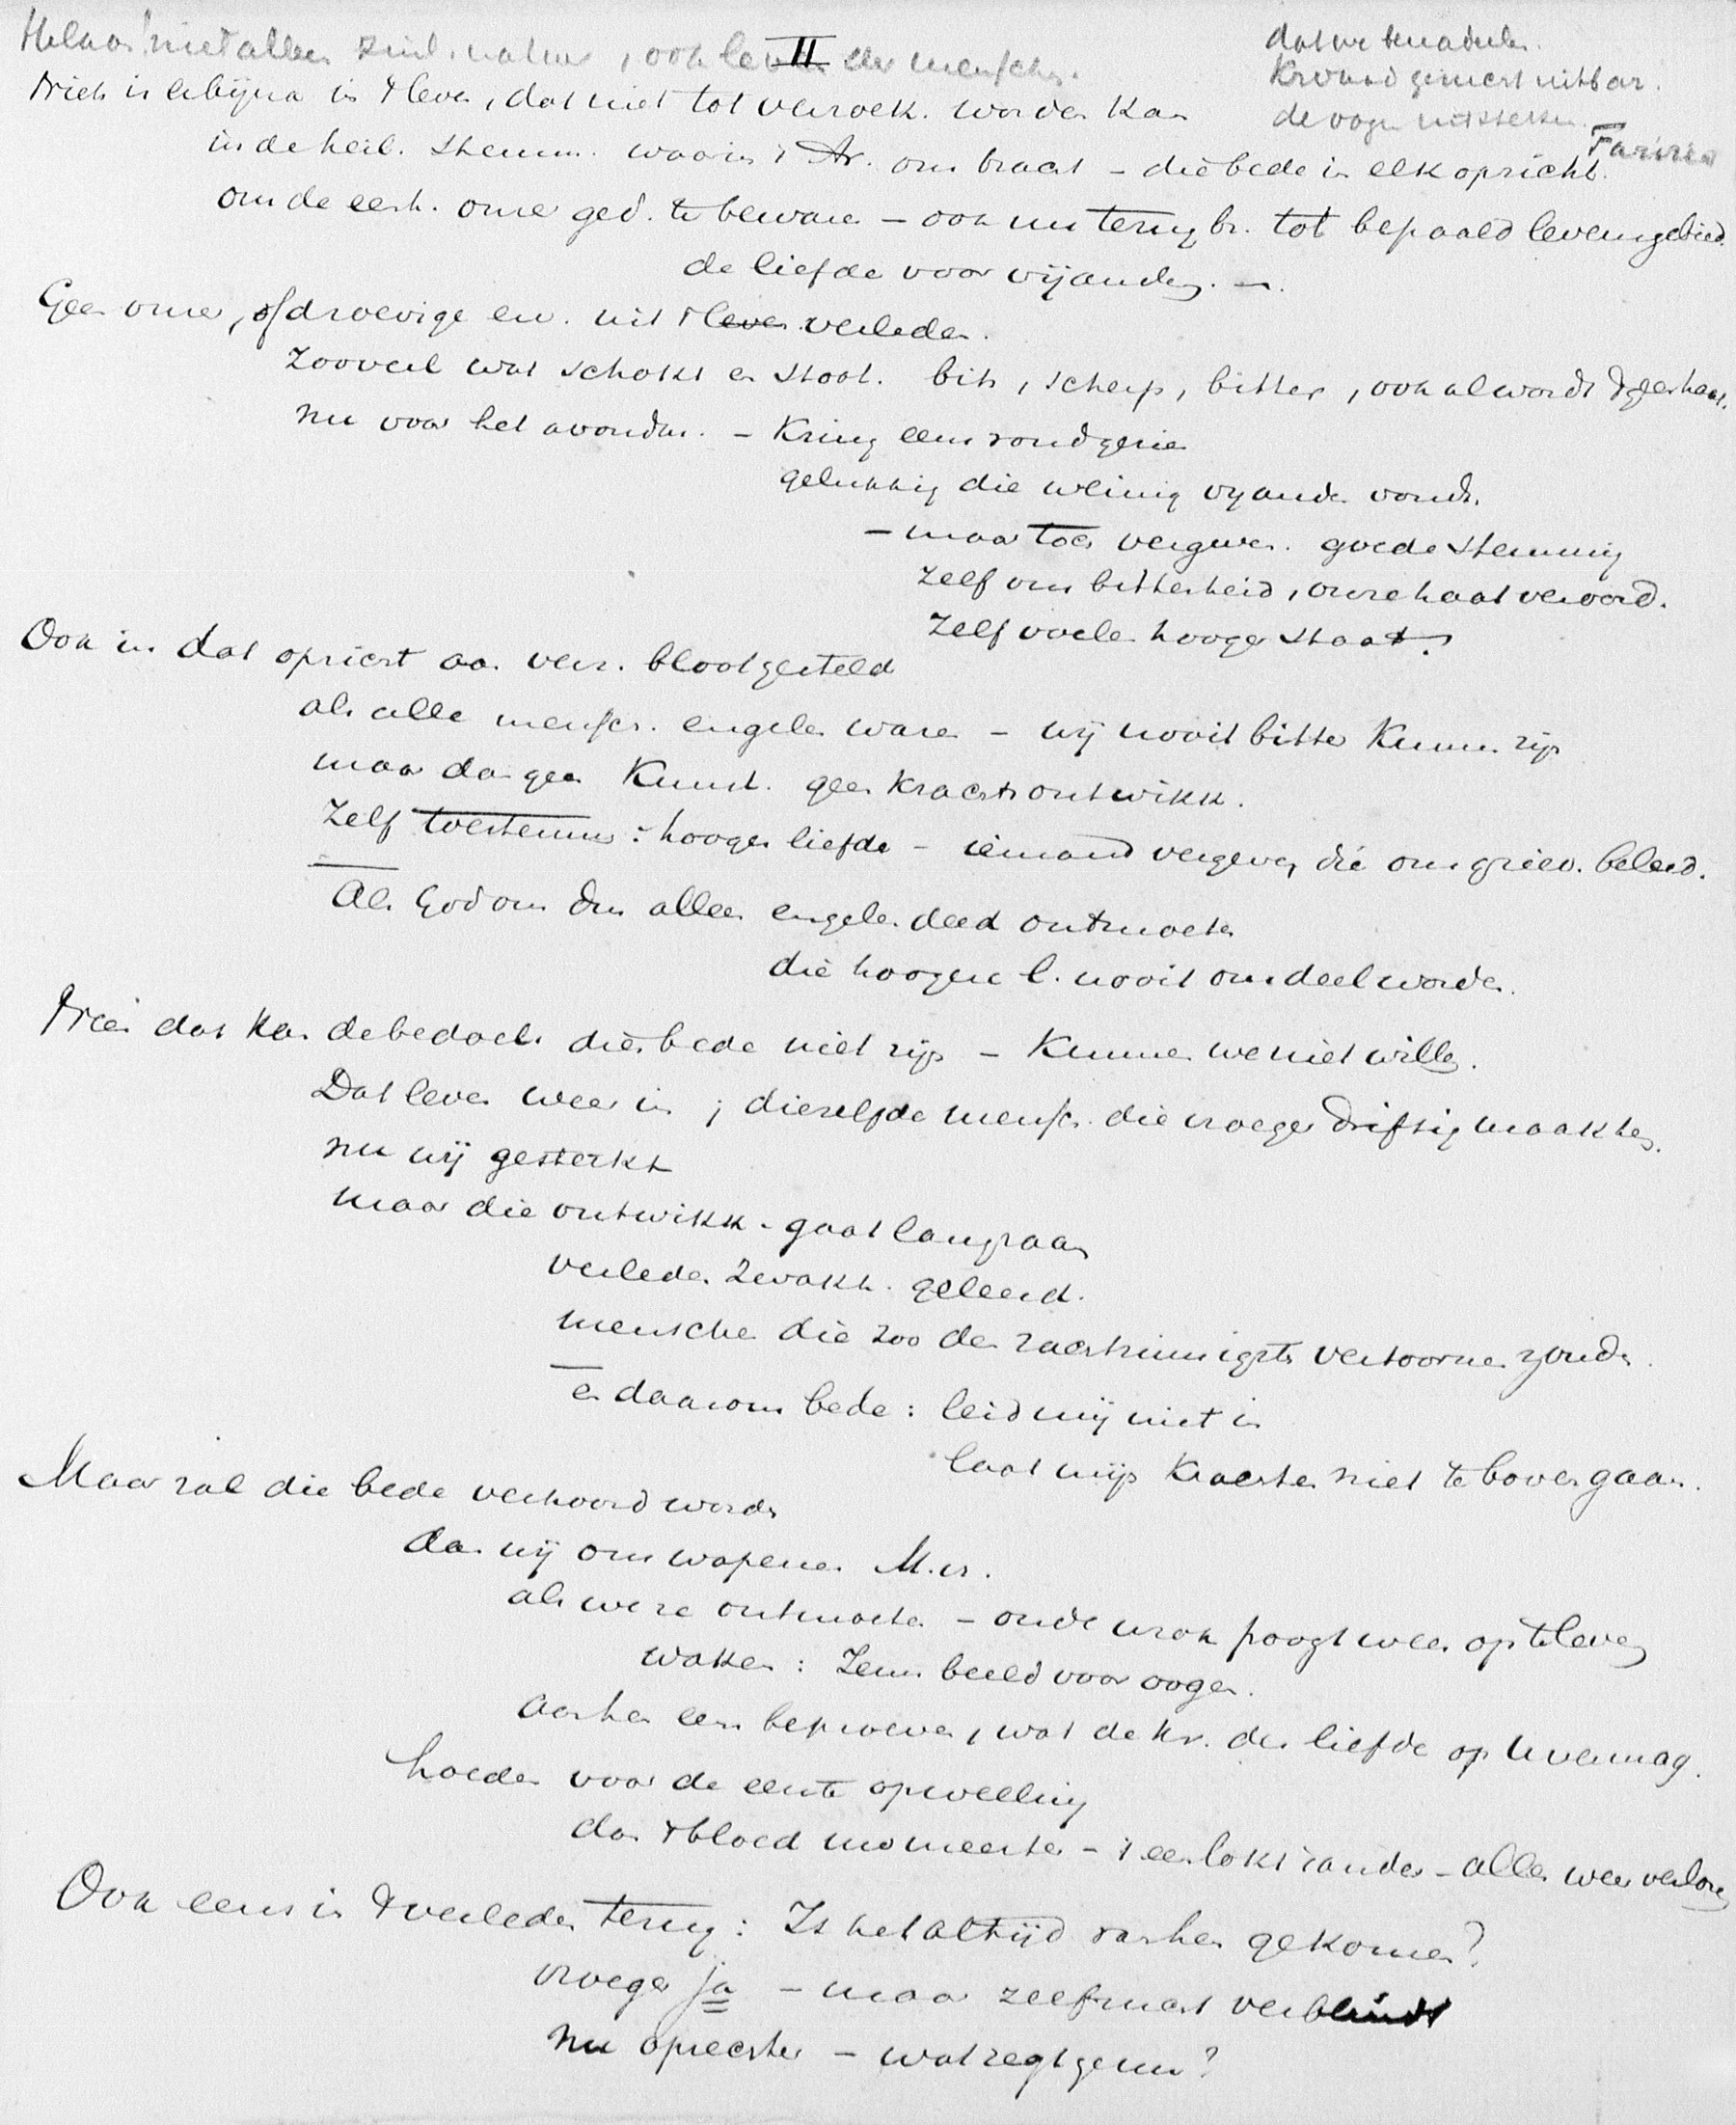 Helaas! niet alleen zinl. natuur, ook leven der menschen.
II
dat we
kwaad gemest uitbar.
de oogen uitsteken.
Farizeën
Niets is er bijna in 't leven, dat niet tot verzoek. worden kan
in de heil. stemm. waarin 't Av. ons bracht – die bede in elk opzicht.
om de eerh. onzer ged. te bewaren – ook nu terug br. tot bepaald levensgebied.
de liefde voor vijanden. –.
Geen onzer, of droevige erv. uit 't leven verleden.
Zooveel wat schokt en stoot. bits, scherp, bitter, ook al wordt 't geen haat.
nu voor het avondm. – Kring eens rondgezien
gelukkig die weinig vyanden vondt.
– maar toch vergeven. goede stemming
zelf ons bitterheid, onze haat veroord.
Zelf voelen hooger staat?
Ook in dat opzicht aan verz. blootgesteld
als alle mensch. engelen waren – wij nooit bitter kunnen zijn
maar dan geen Kunst. geen krachtsontwikk.
Zelf toestemmen: hooger liefde – iemand vergeven die ons griev. beleed.
Als God ons dus alleen engelen deed ontmoeten
die hoogere l. nooit ons deel worden.
Neen dat kan de bedoel. dier bede niet zijn – Kunnen we niet willen.
Dat leven weer in; diezelfde mensch. die vroeger driftig maakten.
nu wij gesterkt
maar die ontwikk. gaat langzaam
verleden zwakh. geleerd.
menschen die zoo den zachtzinnigste vertoornen zouden.
en daarom bede: leid mij niet in
laat mijn krachten niet te boven gaan.
Maar zal die bede verhoord worden
dan wij ons wapenen M. vr.
als we ze ontmoeten – oude wrok poogt weer op te leven
waken: Jezus beeld voor oogen.
achten eens beproeven, wat de kr. der liefde op U vermag.
hoeden voor de eerste opwelling
dan 't bloed meester – 't een lokt 't ander – alles weer verloren
Ook eens in 't verleden terug: Is het altijd van hen gekomen?
vroeger ja – maar zelfzucht verblindt
nu oprechter – wat zegt ge nu?